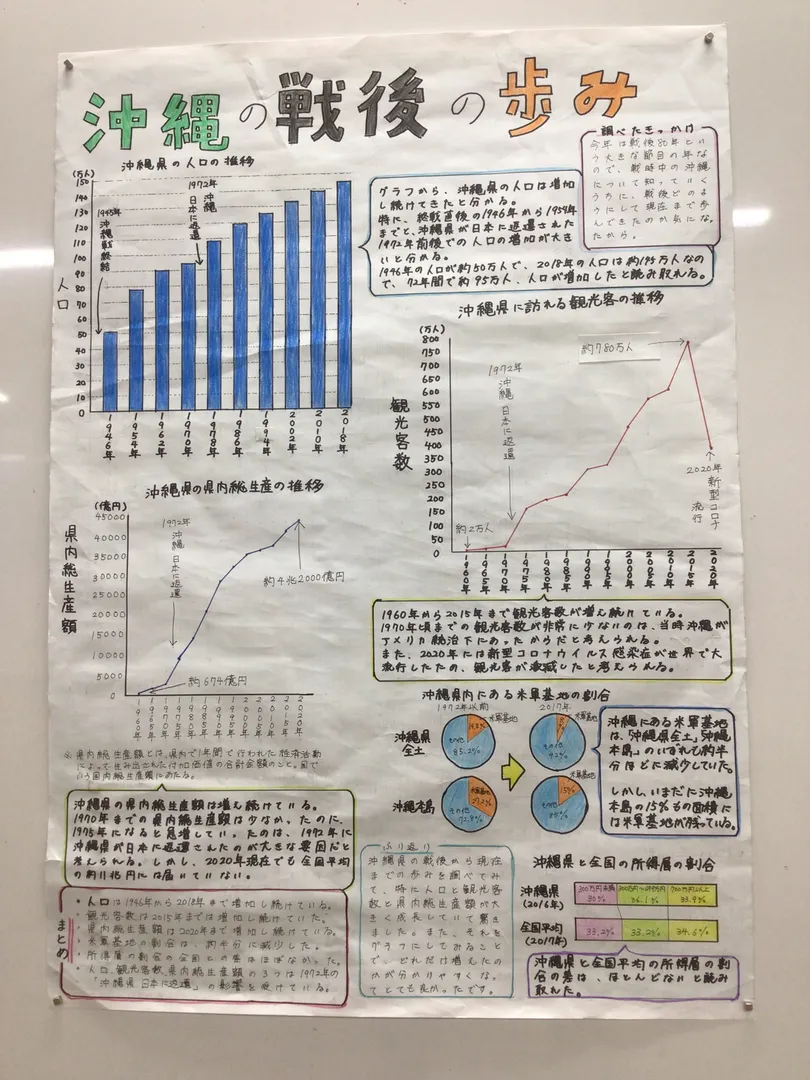 沖縄の戦後の歩み
調べたきっかけ
今年は戦後80年とい
う大きな節目の年な
ので、戦時中の沖縄
について知っていく
うちに、戦後どのよ
うにして現在まで歩
んできたのか気にな
ったから。
沖縄県の人口の推移
(万人)
150
140
130
120
110
100
90
80
70
60
50
40
30
20
10
0
人口
1945年
沖縄戦終結
1972年
沖縄
日本に返還
1946年
1954年
1962年
1970年
1978年
1986年
1994年
2002年
2010年
2018年
グラフから、沖縄県の人口は増加
し続けてきたと分かる。
特に、終戦直後の1946年から1954年
までと、沖縄県が日本に返還された
1972年前後での人口の増加が大き
いと分かる。
1946年の人口が約50万人で、2018年の人口は約145万人なの
で、72年間で約95万人、人口が増加したと読み取れる。
沖縄県に訪れる観光客の推移
(万人)
800
750
700
650
600
550
500
450
400
350
300
250
200
150
100
50
0
観光客数
約780万人
1972年
沖縄
日本に返還
約2万人
2020年
新型コロナ
流行
1960年
1965年
1970年
1975年
1980年
1985年
1990年
1995年
2000年
2005年
2010年
2015年
2020年
1960年から2015年まで観光客数が増え続けている。
1970年頃までの観光客数が非常に少ないのは、当時沖縄が
アメリカ統治下にあったからだと考えられる。
また、2020年には新型コロナウイルス感染症が世界で大
流行したため、観光客が激減したと考えられる。
沖縄県の県内総生産の推移
(億円)
45000
40000
35000
30000
25000
20000
15000
10000
5000
0
県内総生産額
1972年
沖縄
日本に返還
約4兆2000億円
約674億円
1960年
1965年
1970年
1975年
1980年
1985年
1990年
1995年
2000年
2005年
2010年
2015年
2020年
※県内総生産額とは、県内で1年間で行われた経済活動
によって生み出された付加価値の合計金額のこと。国で
いう国内総生産額にあたる。
沖縄県の県内総生産額は増え続けている。
1970年までの県内総生産額は少なかったのに、
1975年になると急増していったのは、1972年に
沖縄県が日本に返還されたのが大きな要因だと
考えられる。しかし、2020年現在でも全国平均
の約11兆円には届いていない。
沖縄県内にある米軍基地の割合
1972年以前
2017年
沖縄県
全土
沖縄本島
米軍基地
その他
85.2%
米軍基地
8%
その他
92%
米軍基地
27.2%
その他
72.8%
米軍基地
15%
その他
85%
沖縄にある米軍基地
は、「沖縄県全土」「沖縄
本島」のいずれも約半
分ほどに減少していた。
しかし、いまだに沖縄
本島の15%もの面積に
は米軍基地が残っている。
まとめ
・人口は1946年から2018年まで増加し続けている。
・観光客数は2015年までは増加し続けていた。
・県内総生産額は2020年まで増加し続けている。
・米軍基地の割合は、約半分に減少した。
・所得層の割合の全国との差はほぼなかった。
・人口、観光客数、県内総生産額の3つは1972年の
「沖縄県日本に返還」の影響を受けている。
ふり返り
沖縄県の戦後から現在
までの歩みを調べてみ
て、特に人口と観光客
数と県内総生産額が大
きく成長していて驚き
ました。また、それを
グラフにしてみること
で、どれだけ増えたの
かが分かりやすくなっ
てとても良かったです。
沖縄県と全国の所得層の割合
沖縄県
(2016年)
300万円未満
30%
700万円以上
33.9%
全国平均
(2017年)
33.2%
33.2%
沖縄県と全国平均の所得層の割
合の差は、ほとんどないと読み
取れた。